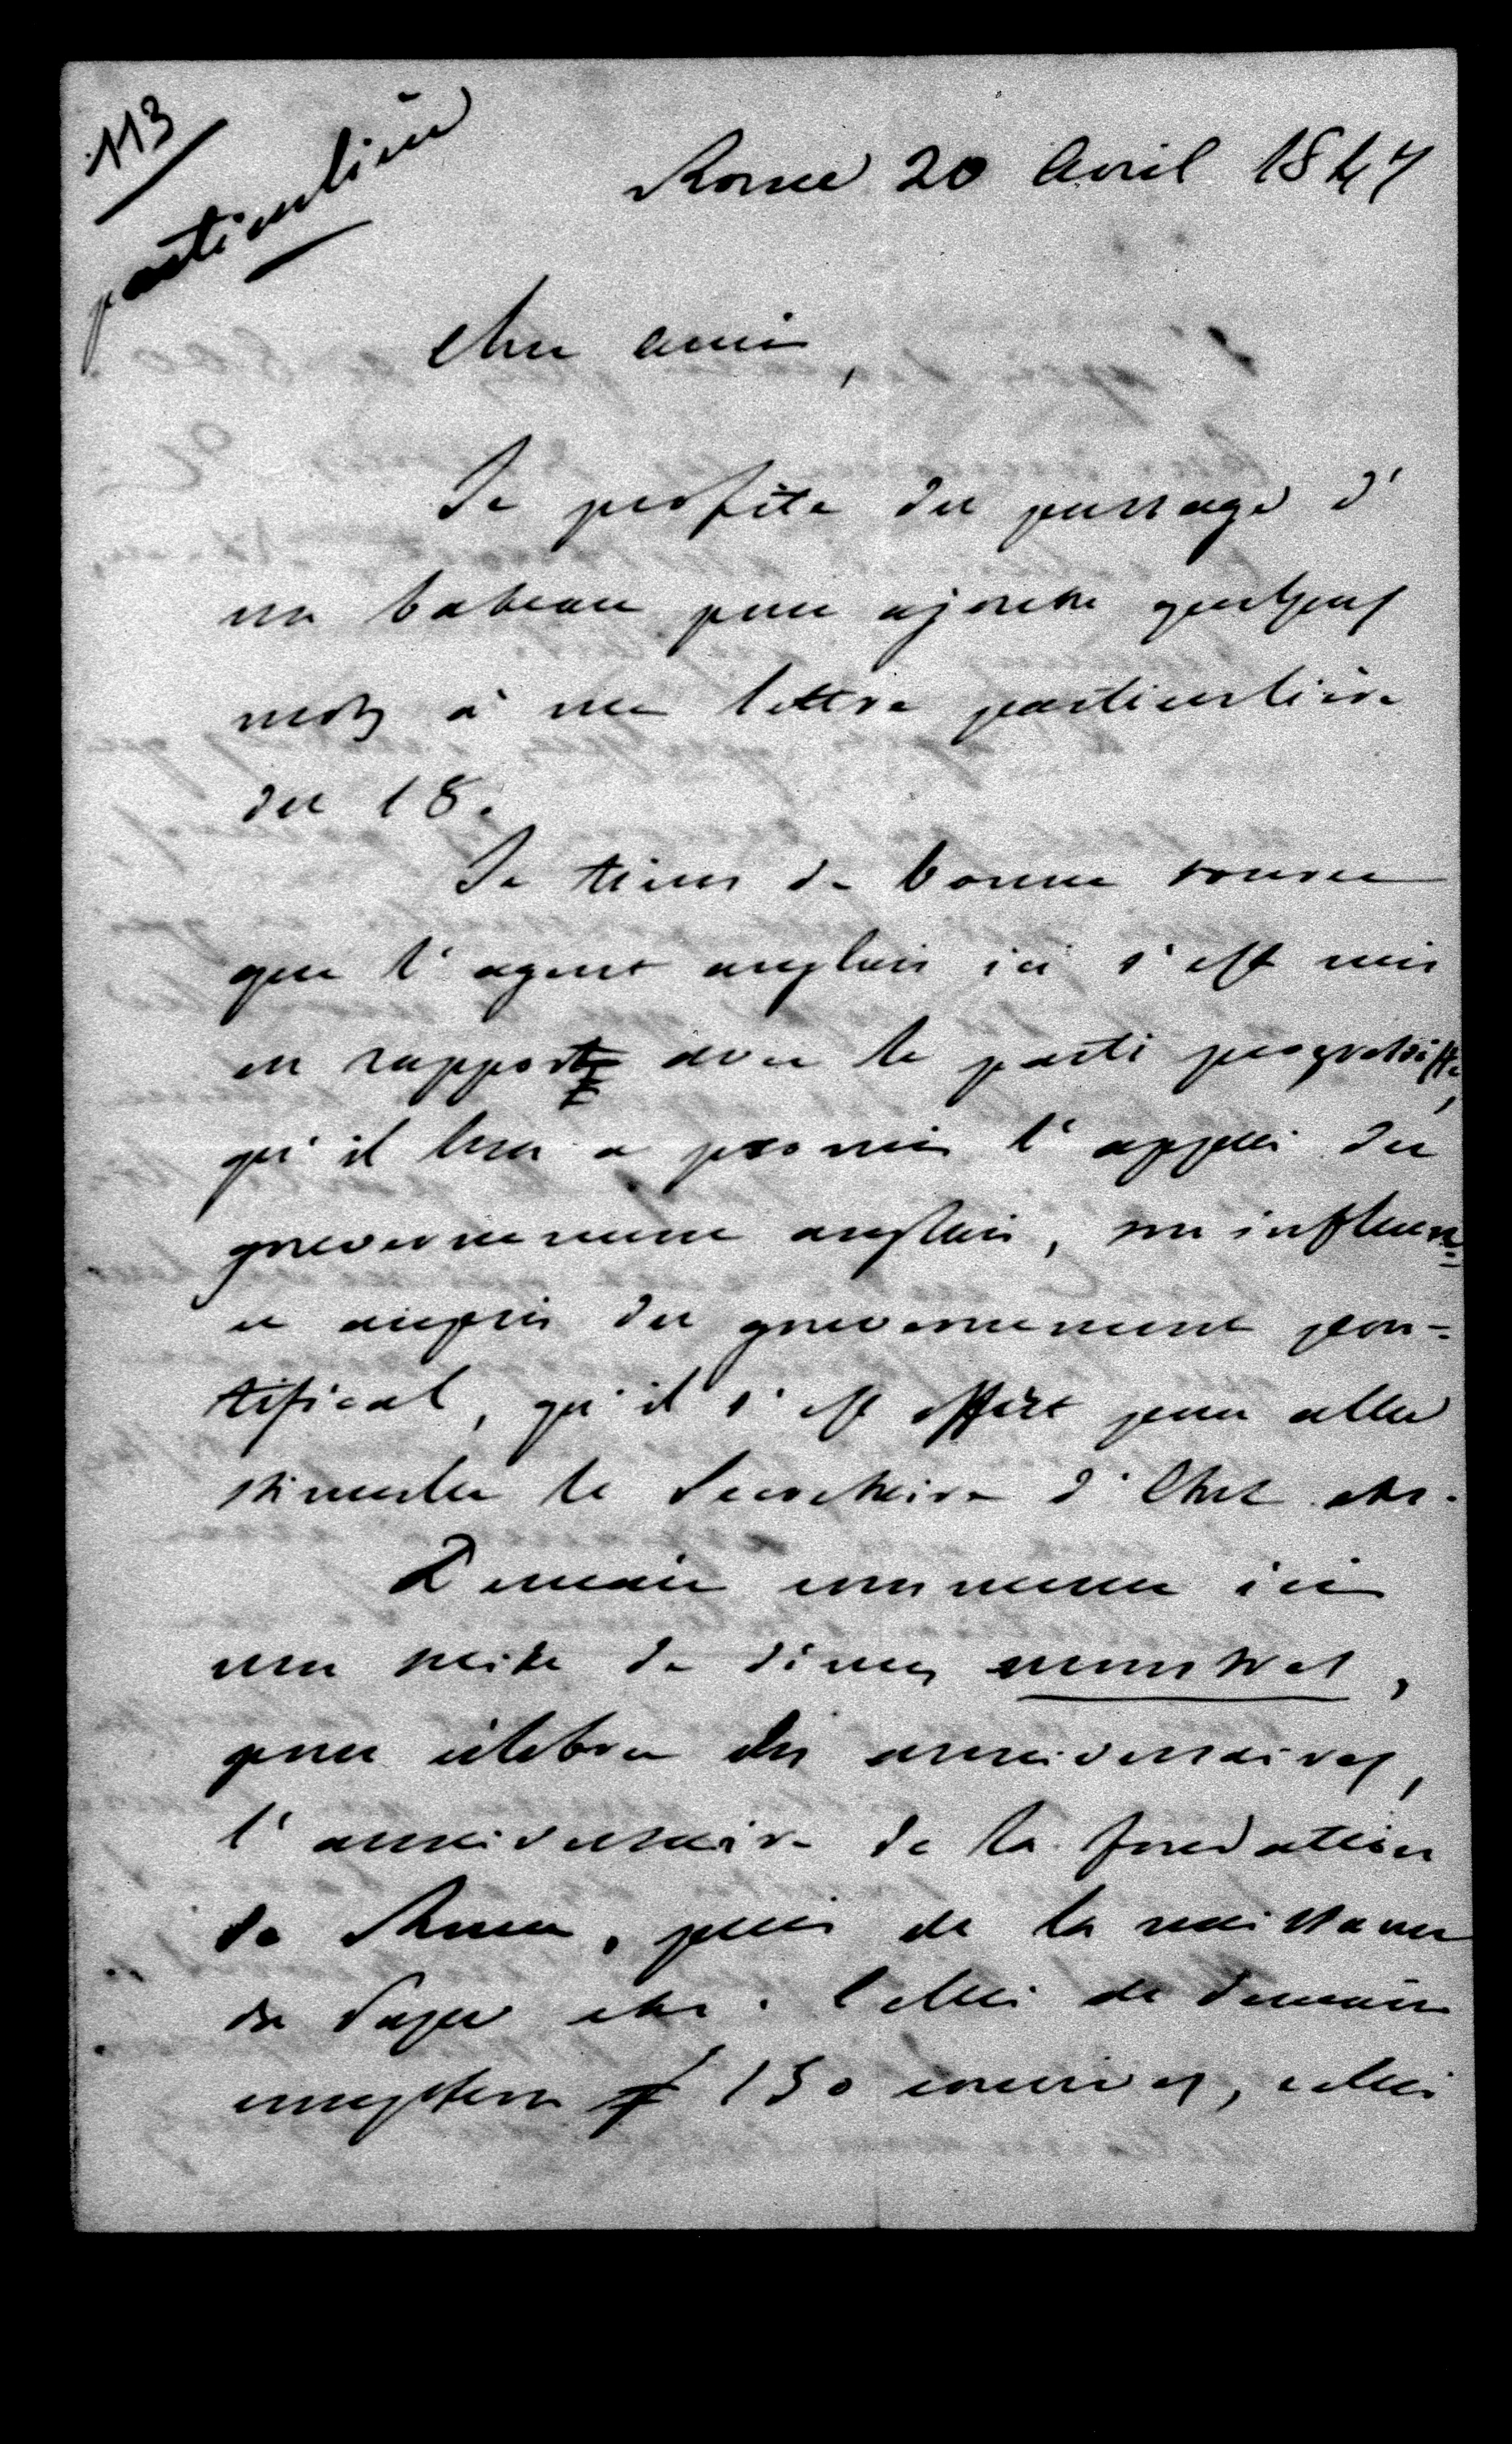 113
particulière
Rome 20 Avril 1847
Cher ami,
Je profite du passage d'
un bateau pour ajouter quelques
mots à ma lettre particulière
du 18.
Je tiens de bonne source
que l'agent anglais ici s'est mis
en rapport avec le parti progressiste,
qu'il leur a promis l'appui du
gouvernement anglais, son influen-
ce auprès du gouvernement pon-
tifical, qu'il s'est offert pour aller
stimuler le Secrétaire d'Etat etc.
Demain commence ici
une suite de diners monstres,
pour célébrer des anniversaires,
l'anniversaire de la fondation
de Rome, puis de la naissance
du Pape etc. Celui de demain
comptera 150 convives, celui